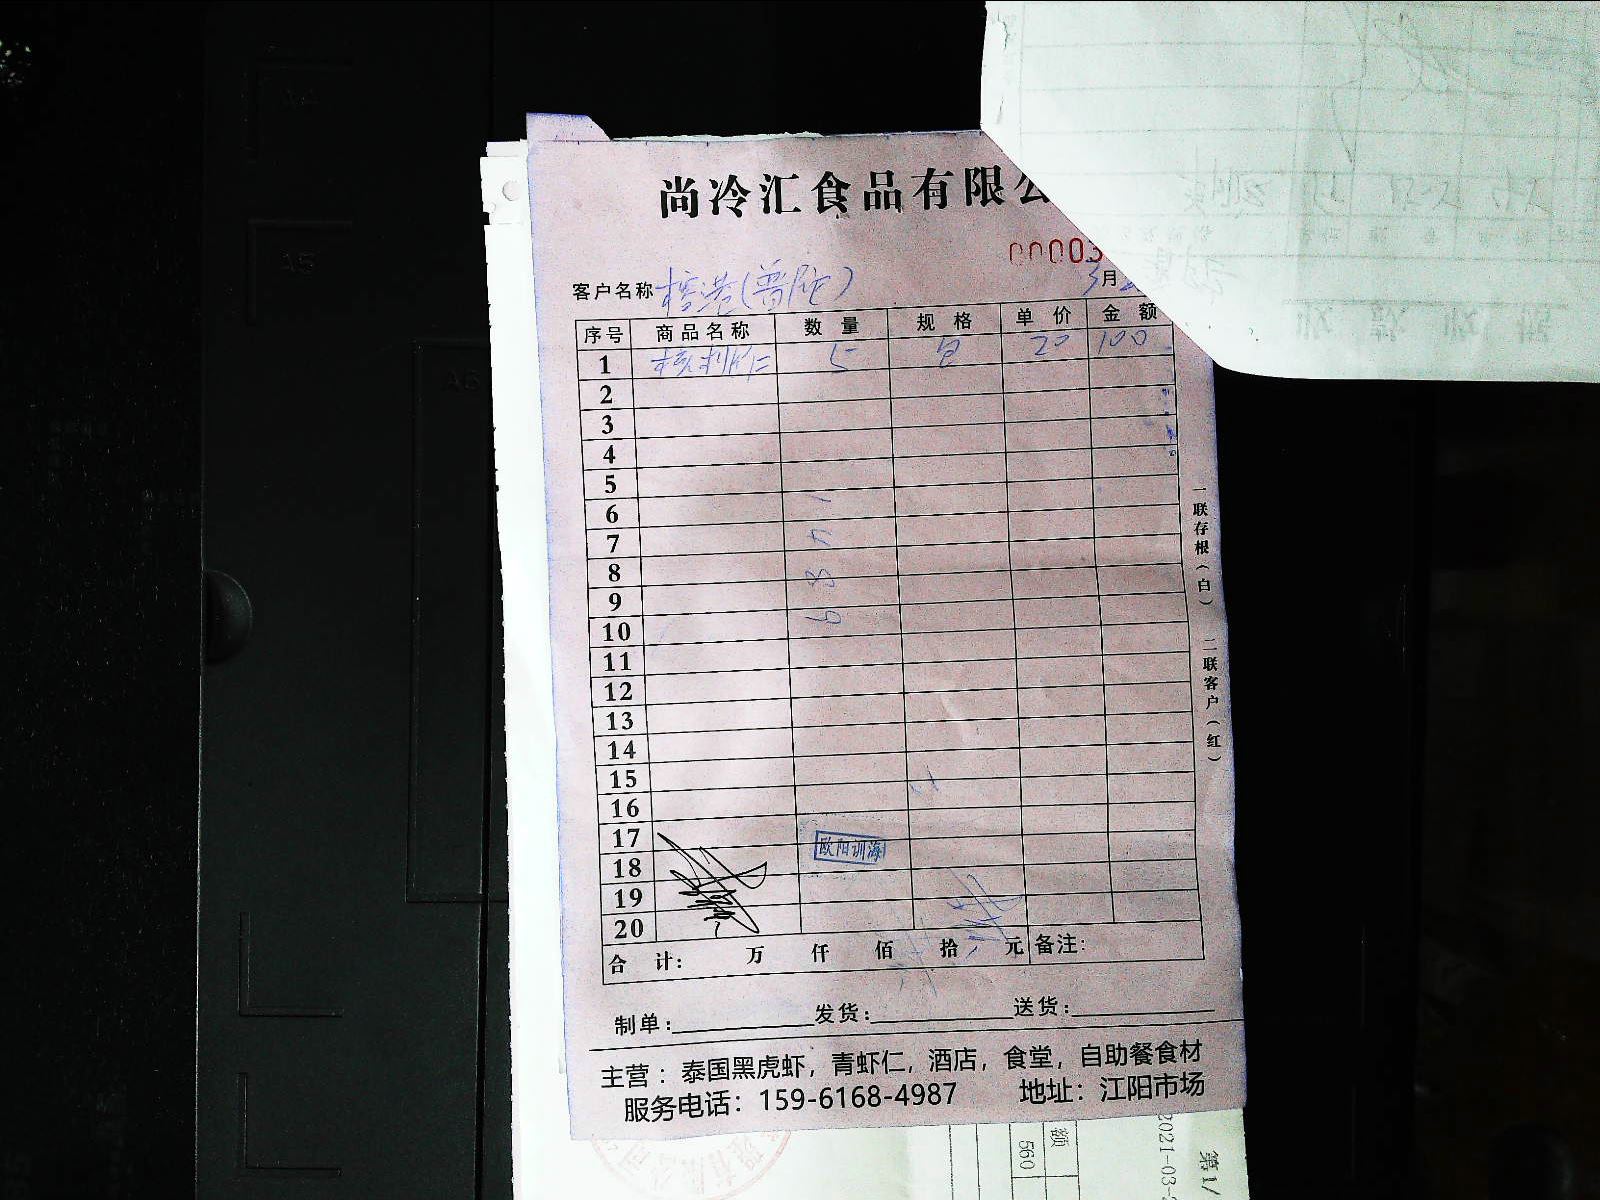 尚冷汇食品有限公
00003
客户名称 (普陀) 3月
序号 商品名称 数量 规格 单价 金额
1 5 包 20 100
2
3
4
5
6
7
8
9
10
11
12
13
14
15
16
17
欧阳训海
18
19
20
合计: 万 仟 佰 拾 元 备注:
制单: 发货: 送货:
主营：泰国黑虎虾，青虾仁，酒店，食堂，自助餐食材
服务电话：159-6168-4987 地址：江阳市场
一联存根（白） 二联客户（红）
A4
A5
A6
额
560
2021-03-
第1/